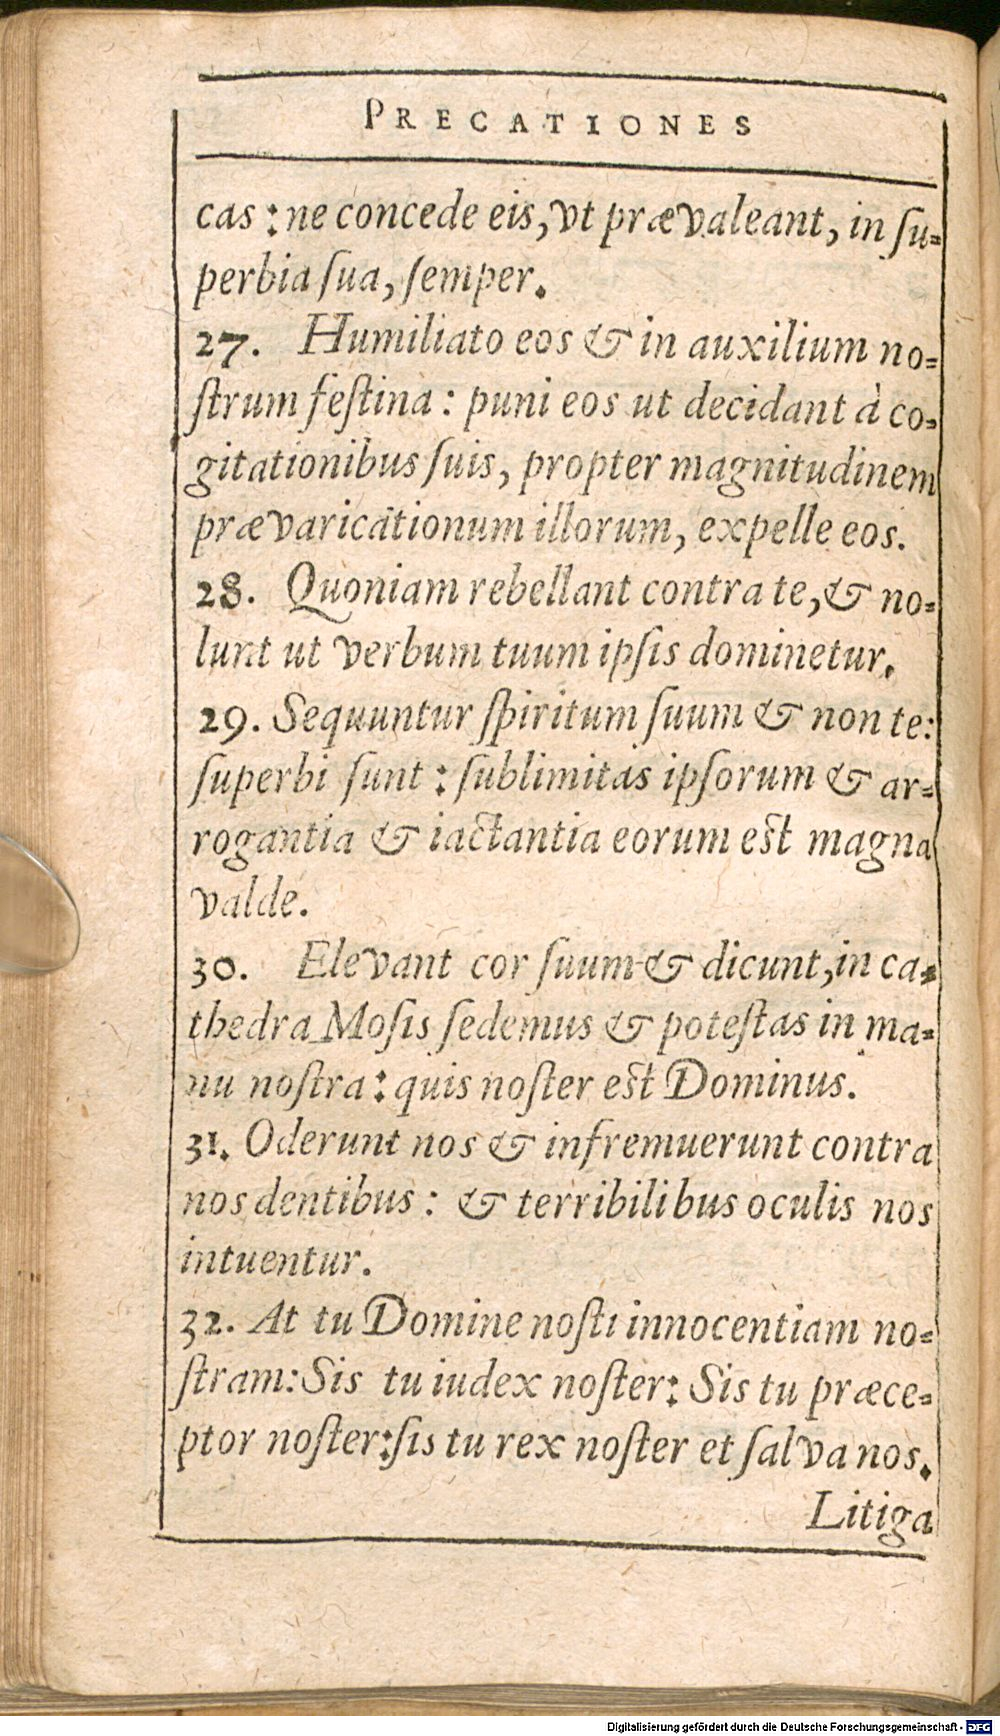 PRECATIONES
cas : ne concede eis, vt prævaleant, in ſu-
perbia ſua, ſemper.
27. Humiliato eos & in auxilium no-
ſtrum feſtina : puni eos ut decidant à co-
gitationibus ſuis, propter magnitudinem
prævaricationum illorum, expelle eos.
28. Quoniam rebellant contra te, & no-
lunt ut verbum tuum ipſis dominetur.
29. Sequuntur ſpiritum ſuum & non te:
ſuperbi ſunt : ſublimitas ipſorum & ar-
rogantia & iactantia eorum est magna
valde.
30. Elevant cor ſuum & dicunt, in ca-
thedra Moſis ſedemus & poteſtas in ma-
nu noſtra : quis noſter est Dominus.
31. Oderunt nos & infremuerunt contra
nos dentibus : & terribilibus oculis nos
intuentur.
32. At tu Domine noſti innocentiam no-
ſtram: Sis tu iudex noſter: Sis tu præce-
ptor noſter: ſis tu rex noſter et ſalva nos.
Litiga
Digitalisierung gefördert durch die Deutsche Forschungsgemeinschaft - DFG